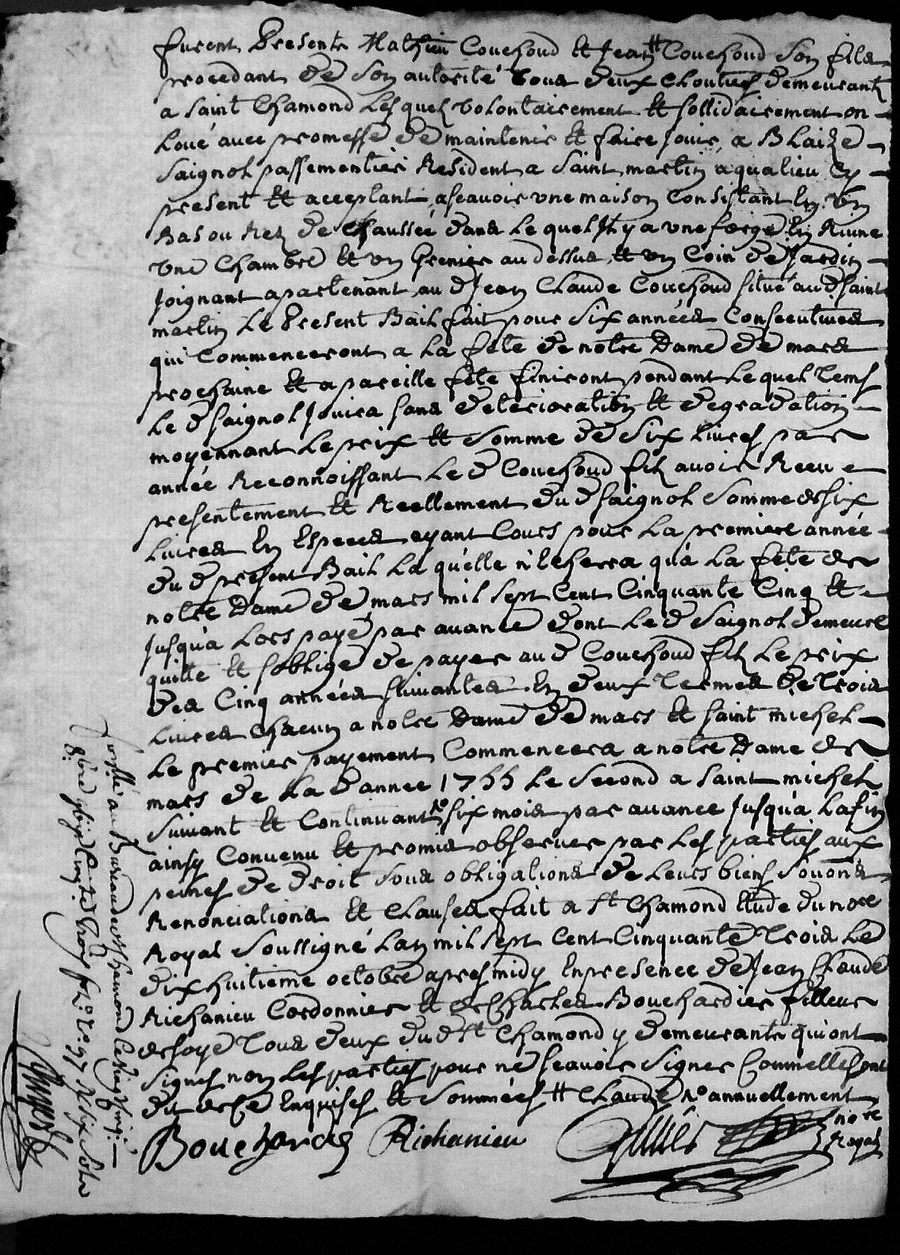 furent Presents Mathieu Couchoud et Jean # Couchoud son fils
procedant de son autorité tous deux cloutiers demeurants
a Saint Chamond Lesquels volontairement et sollidairement on
Loué avec promesse de maintenir et faire jouir a Blaize
Saignol passementier Resident a Saint martin aqualieu Cy
present et acceptant ascavoir une maison Consistant En Un
Bas ou Rez de Chaussée dans Lequel Il y a une forge En Ruine
une Chambre et un Grenier au dessus et un Coin de Jardin
Joignant apartenant au d Jean Claude Couchoud situé au d. Saint
martin Le Present Bail fait pour six années Consecutives
qui Commenceront a La fête de notre Dame de mars
prochaine et a pareille fête finiront pendant Lequel tems
Le d Saignol Jouira sans deterioration et degradation
moyennant Le prix et somme de six Livres par
année Reconnoissant Le d Couchoud fils avoir Receu
presentement et Reellement du d Saignol somme de six
Livres En Especes ayant Cours pour La premiere année
du d present Bail La quelle n'echerra qu'a La fête de
notre Dame de mars mil sept Cent Cinquante Cinq et
Jusqu'a Lors payé par avance dont Le d Saignol demeure
quitte et s'oblige de payer au d Couchoud fils Le prix
des Cinq années suivantes En deux termes de trois
Livres chacun a notre Dame de mars et saint michel
Le premier payement Commencera a notre Dame de
mars de La d année 1755 Le second a Saint michel
suivant et Continuant de six mois par avance Jusqu'a La fin
ainsy Convenu et promis observer par Les parties aux
peines de droit sous obligations de Leurs biens
Renonciations et Clauses fait a St Chamond Etude du nore
Royal soussigné L'an mil sept Cent Cinquante trois Le
dixhuitieme octobre apres midy En presence de Jean Claude
Richanieu Cordonnier et de Charles Bouchardier filleur
de soye tous deux du d St Chamond y demeurants qui ont
signés non Les parties pour ne scavoir signer Comme Elles ont
dit de Ce Enquises et sommées # Claude annuellement
Bouchardié Richanieu
nore
Royal
au Bureau de St Chamond Le